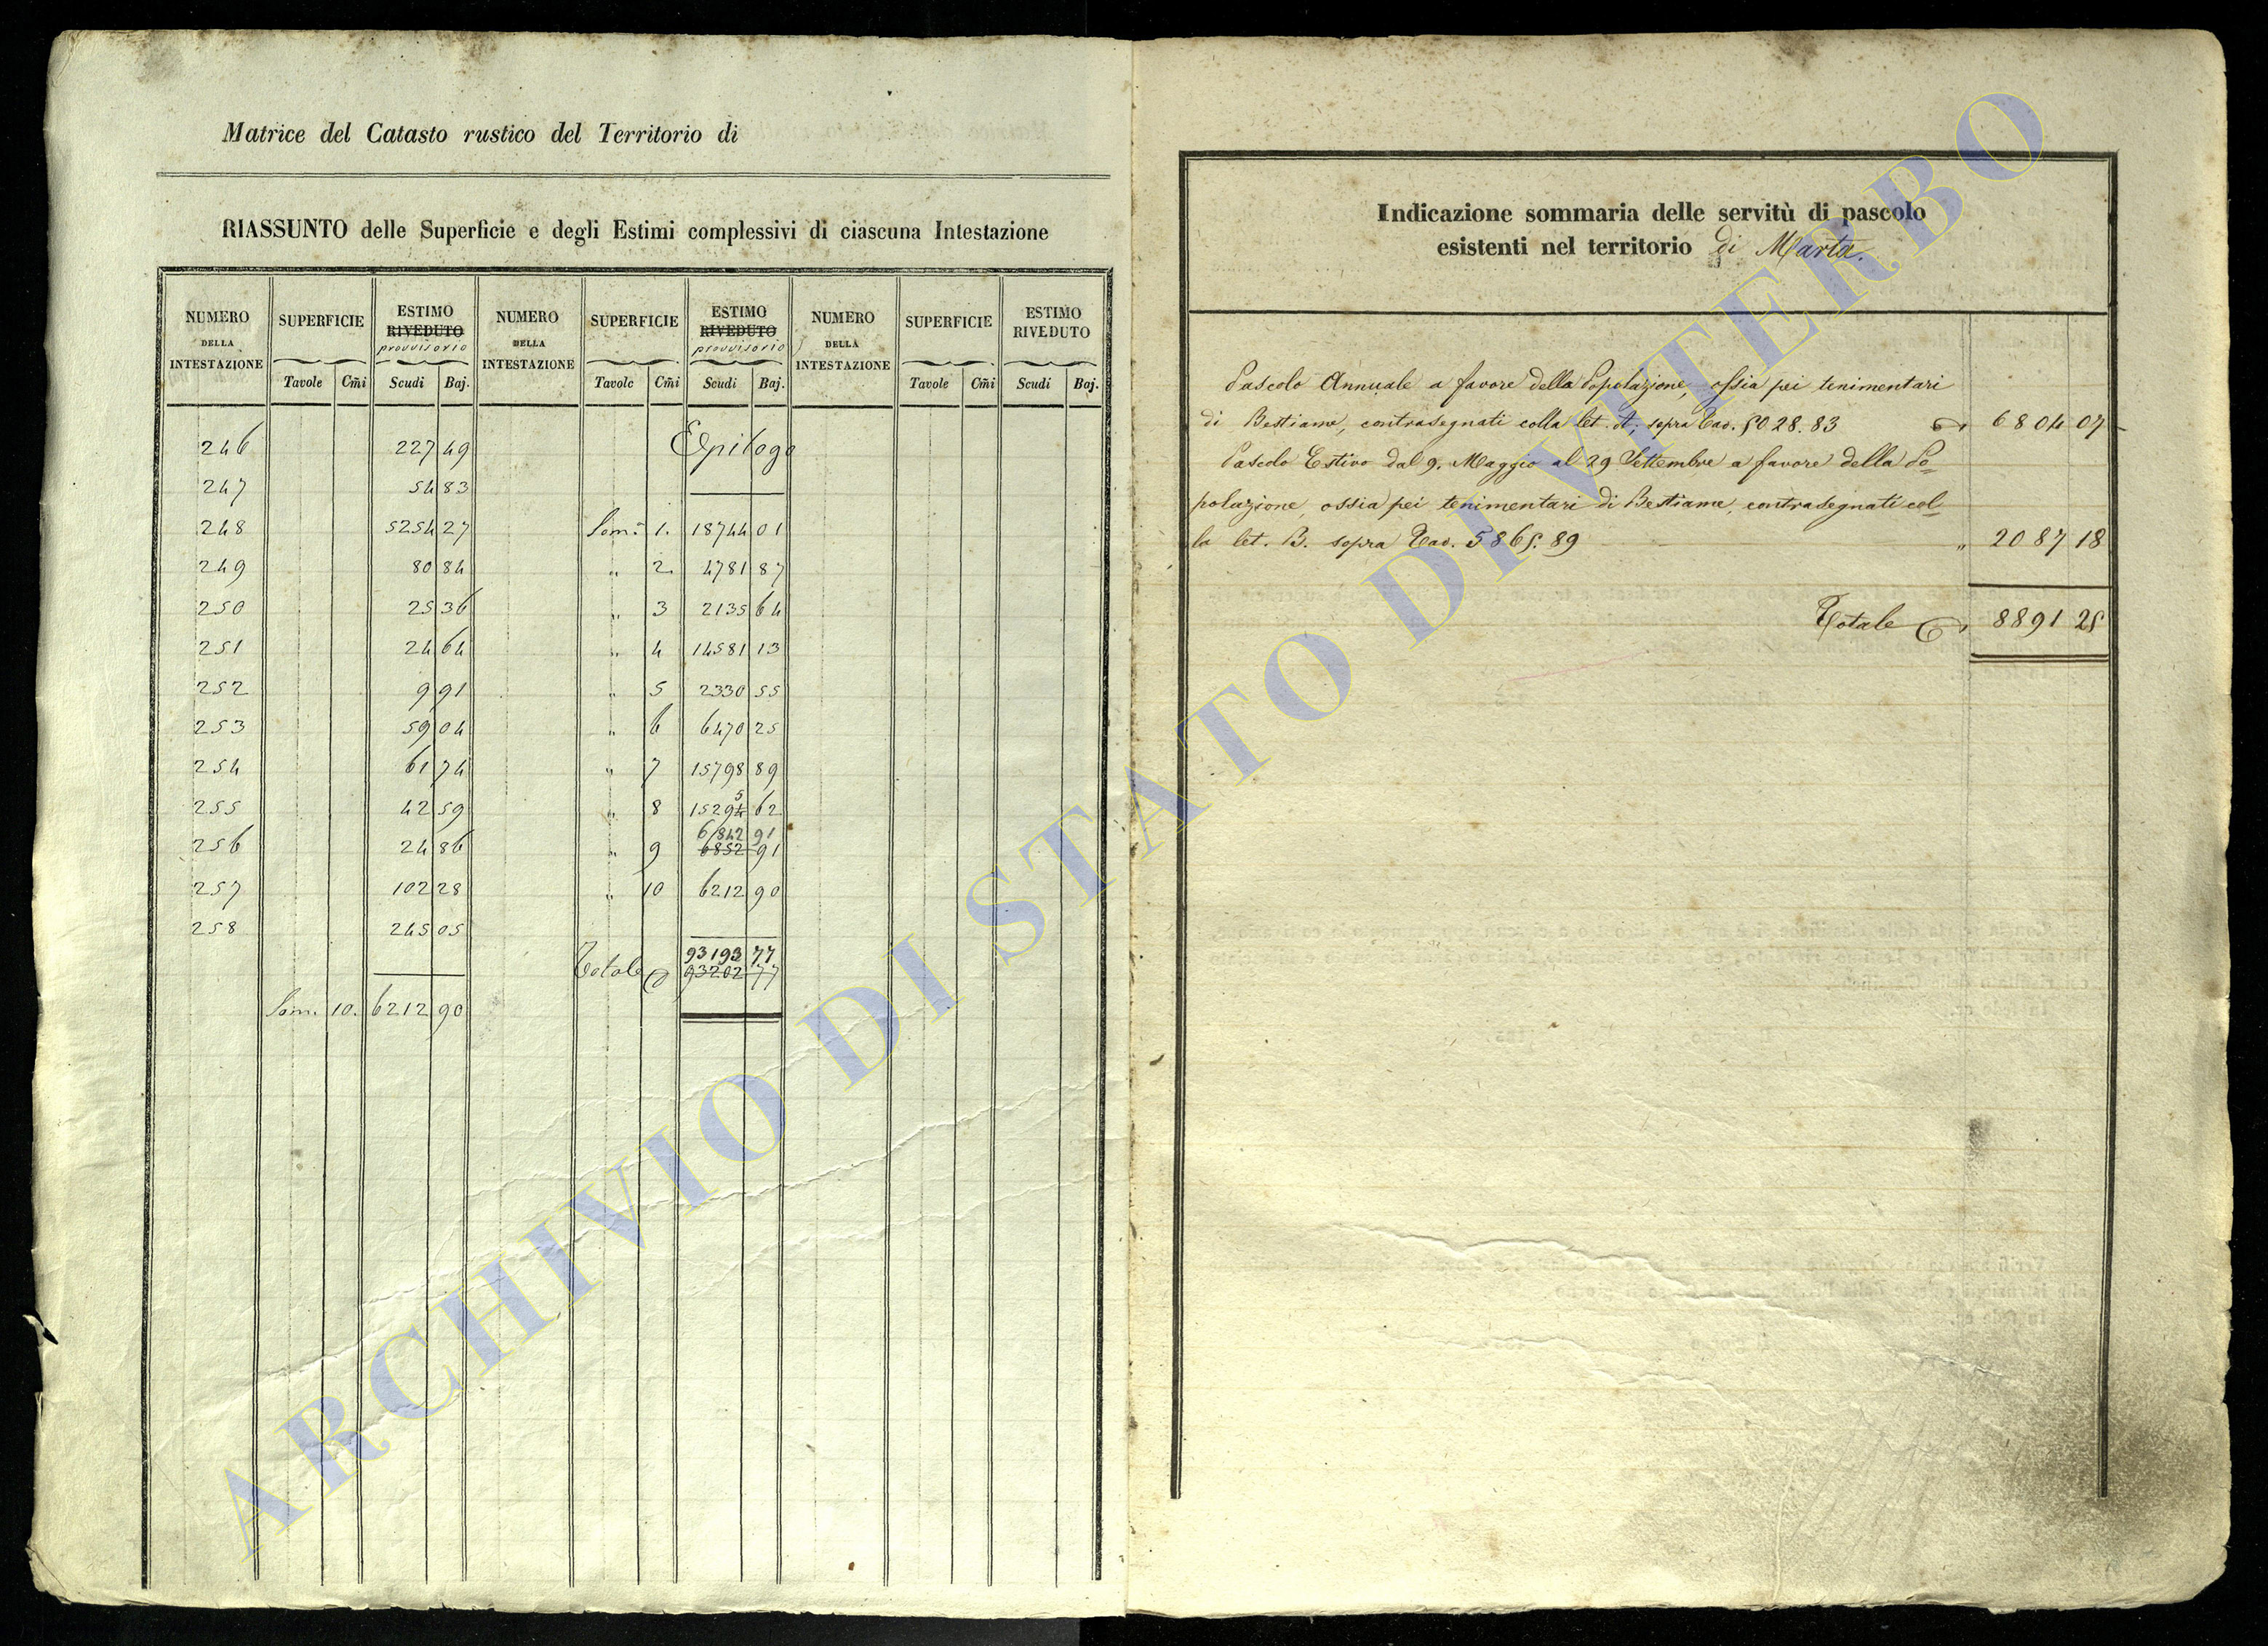 Matrice del Catasto rustico del Territorio di
RIASSUNTO delle Superficie e degli Estimi complessivi di ciascuna Intestazione
NUMERO DELLA INTESTAZIONE SUPERFICIE ESTIMO RIVEDUTO provvisorio NUMERO DELLA INTESTAZIONE SUPERFICIE ESTIMO RIVEDUTO provvisorio NUMERO DELLA INTESTAZIONE SUPERFICIE ESTIMO RIVEDUTO
Tavole Cm̃i Scudi Baj. Tavole Cm̃i Scudi Baj. Tavole Cm̃i Scudi Baj.
246 227 49 Epilogo
247 54 83
248 5254 27 Som: 1. 18744 01
249 80 84 " 2. 4781 87
250 25 36 " 3 2135 64
251 24 64 " 4 14581 13
252 9 91 " 5 2330 55
253 59 04 " 6 6470 25
254 61 74 " 7 15798 89
255 42 59 " 8 15294 62
5
256 24 86 " 9 6852 91
6842 91
257 102 28 " 10 6212 90
258 245 05
Totale 93193 77
93202 77
Som. 10. 6212 90
Indicazione sommaria delle servitù di pascolo
esistenti nel territorio di Marta.
Pascolo Annuale a favore della Popolazione, ossia pei tenimentari
di Bestiame, contrasegnati colla let. A; sopra Tav. 5028.83 6804 07
Pascolo Estivo dal 9. Maggio al 29 Settembre a favore della Po=
polazione, ossia pei tenimentari di Bestiame, contrasegnati col=
la let. B. sopra Tav. 5865.89 " 2087 18
Totale 8891 25
ARCHIVIO DI STATO DI VITERBO